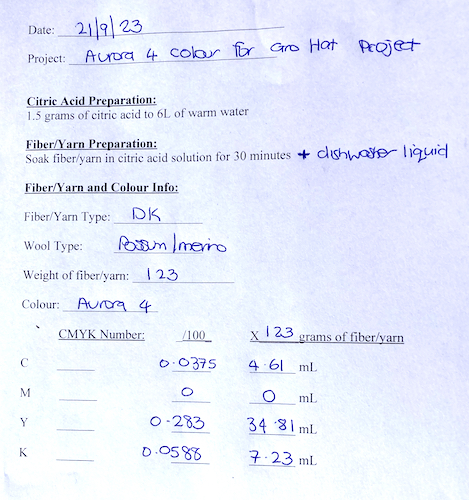 Date: 21/9/23
Project: Aurora 4 colour for Gro Hat Project
Citric Acid Preparation:
1.5 grams of citric acid to 6L of warm water
Fiber/Yarn Preparation:
Soak fiber/yarn in citric acid solution for 30 minutes + dishwater liquid
Fiber/Yarn and Colour Info:
Fiber/Yarn Type: DK
Wool Type: Possum/merino
Weight of fiber/yarn: 123
Colour: Aurora 4
CMYK Number: /100 X 123 grams of fiber/yarn
C 0.0375 4.61 mL
M 0 0 mL
Y 0.283 34.81 mL
K 0.0588 7.23 mL